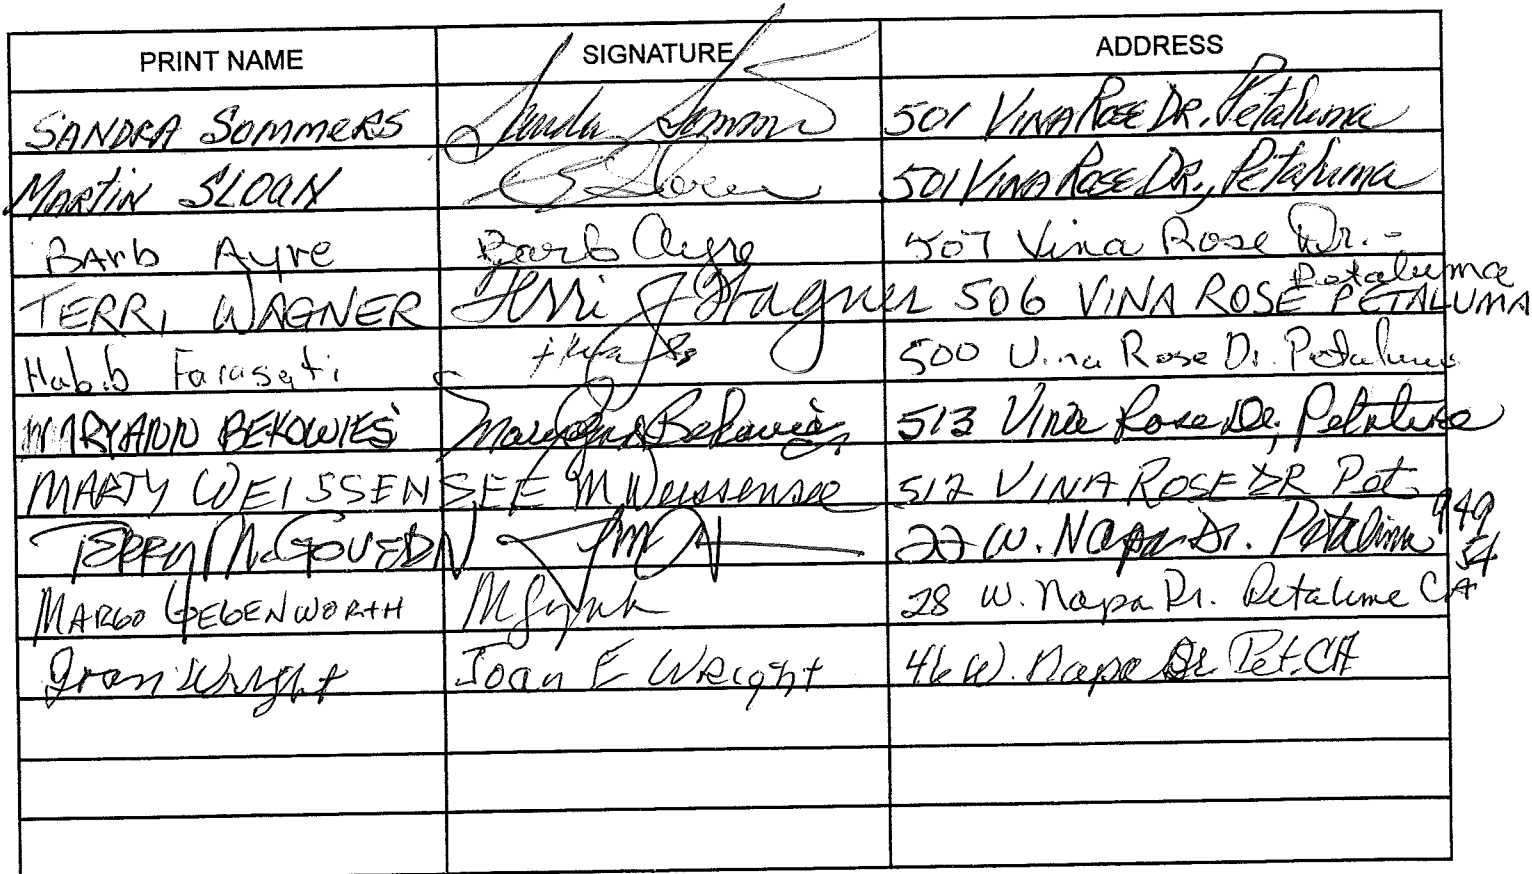 PRINT NAME SIGNATURE ADDRESS
SANDRA SOMMERS Sandra Sommers 501 VINA ROSE DR. Petaluma
MARTIN SLOAN Sloan 501 VINA ROSE DR., Petaluma
BArb Ayre Barb Ayre 507 Vina Rose Dr. -
Petaluma
TERRI WAGNER Terri J Wagner 506 VINA ROSE PETALUMA
Habib Farasati 500 Vina Rose Dr. Petaluma
MARYANN BEKOWIES 513 Vina Rose Dr, Petaluma
MARTY WEISSENSEE M Weissensee 512 VINA ROSE DR Pet
TERRY McGOVERN 22 W. Napa Dr. Petaluma 949
54
MARGO GEGENWORTH 28 W. Napa Dr. Petaluma CA
Joan Wright Joan E Wright 46 W. Napa Dr. Pet. CA